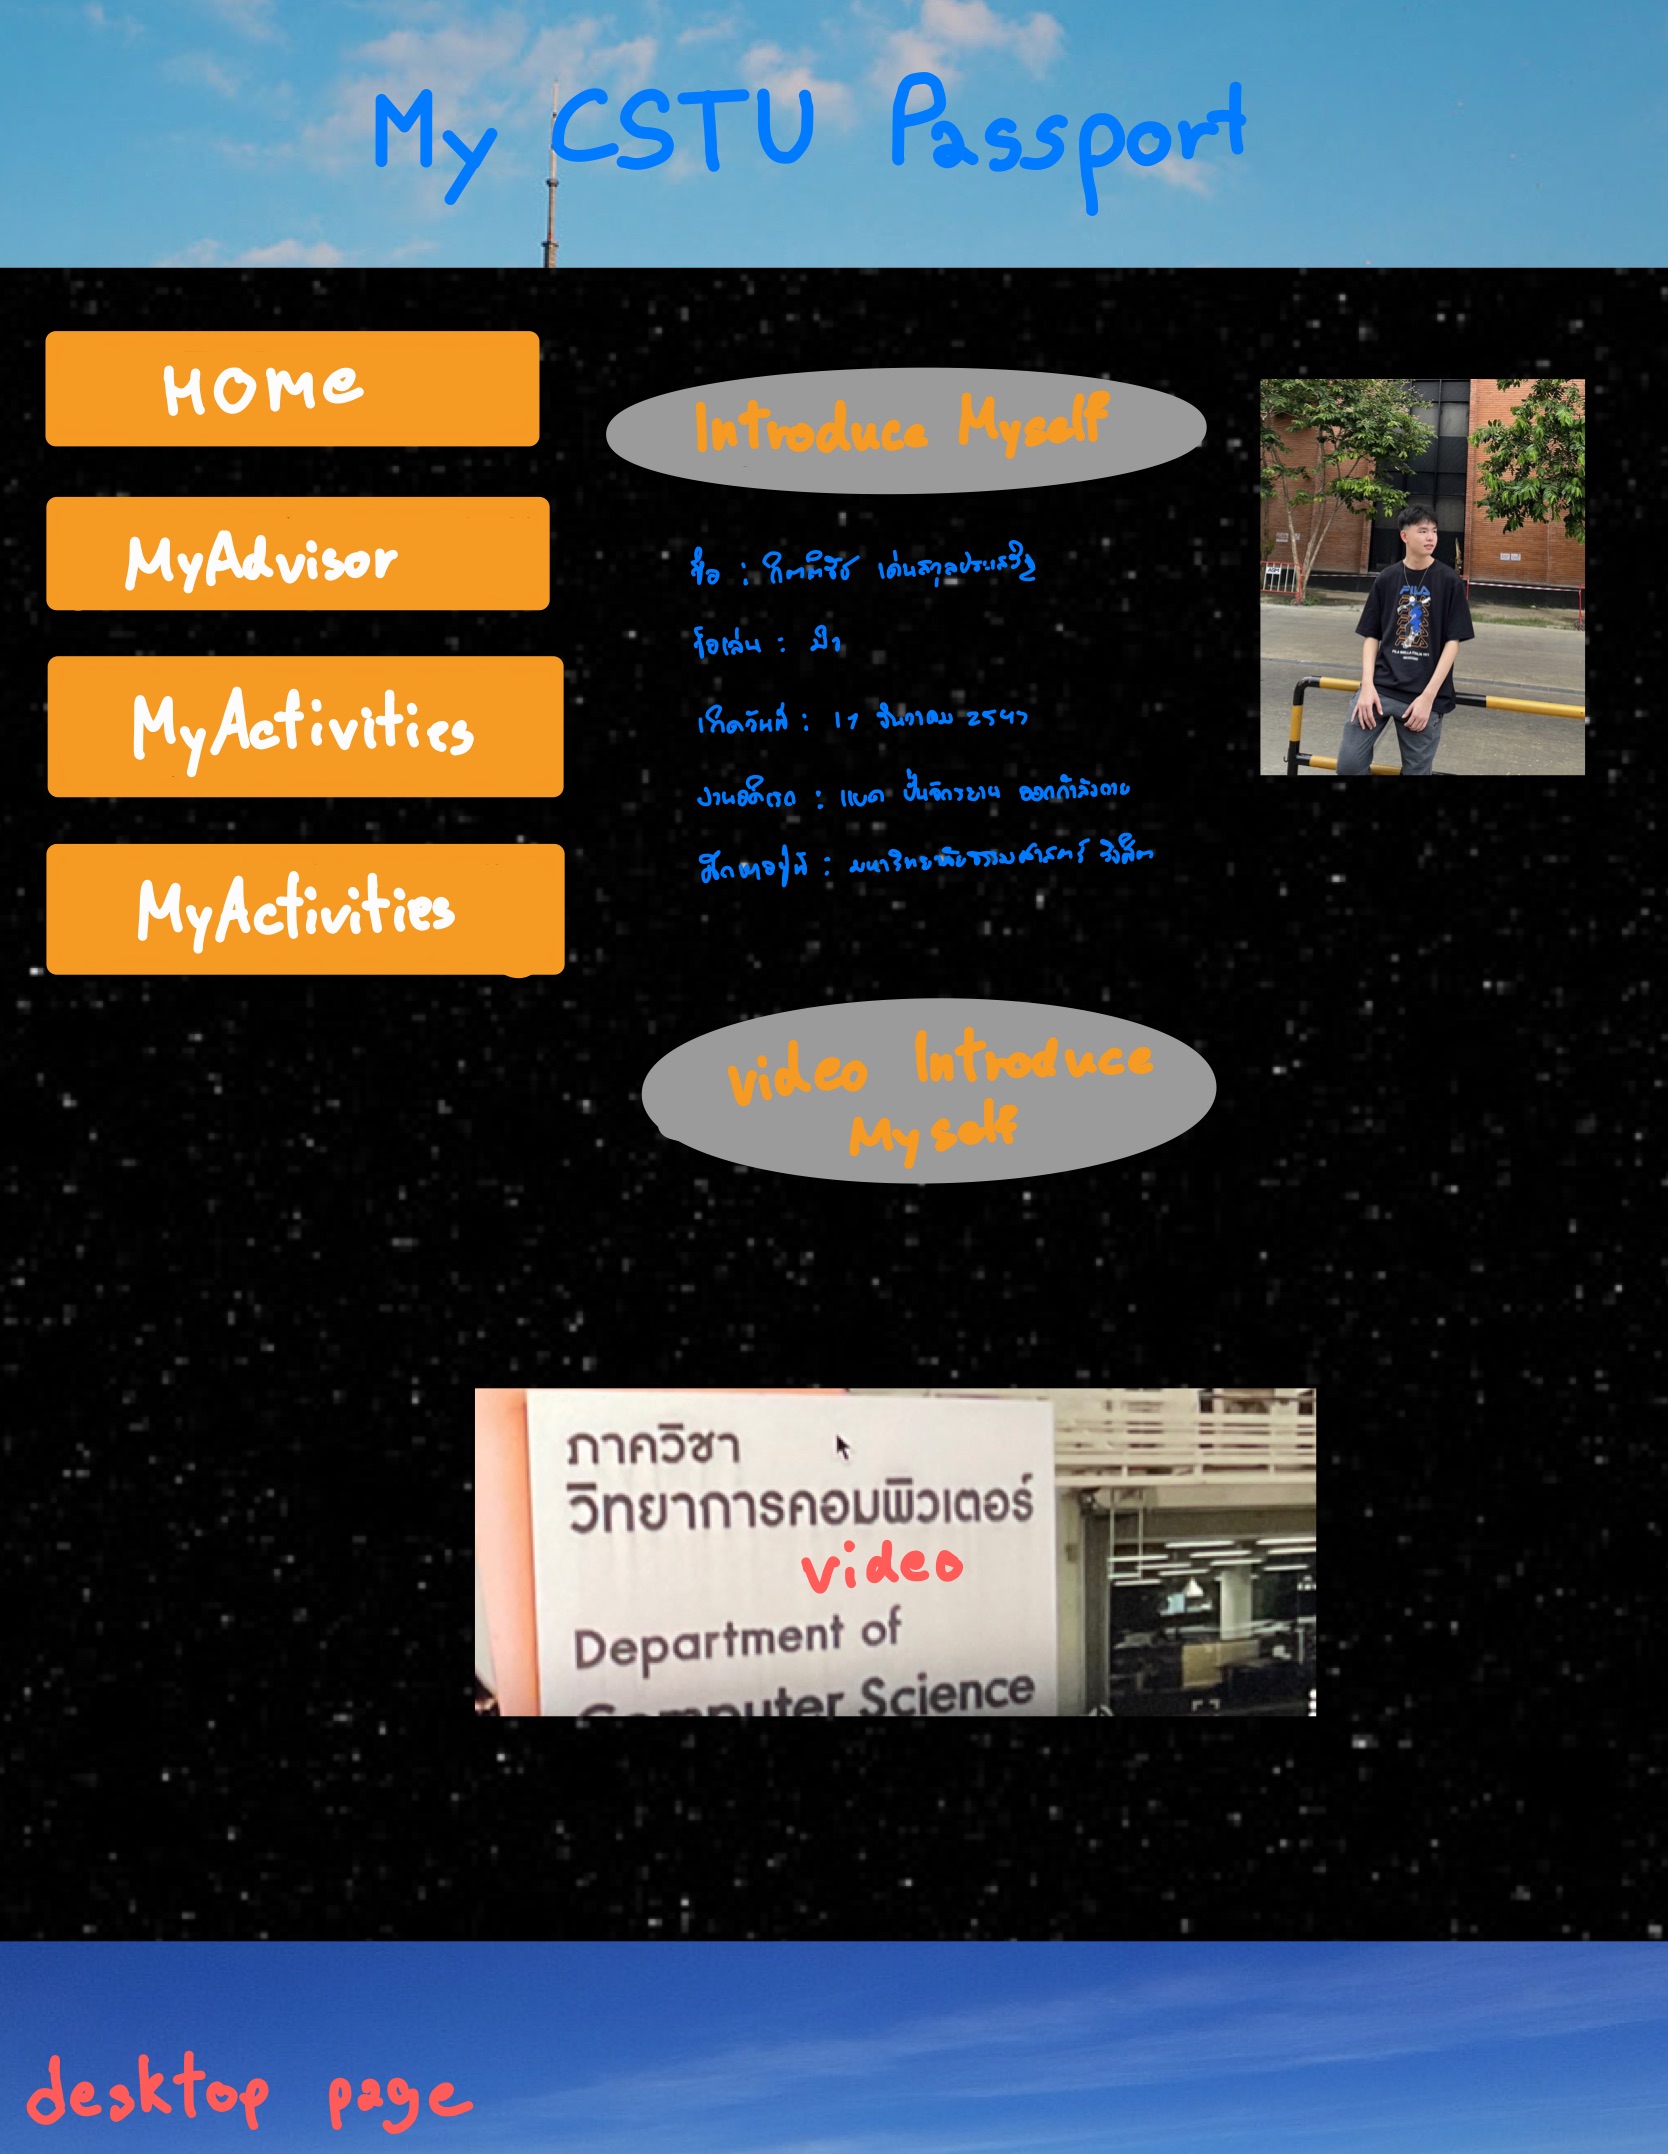 My CSTU Passport
HOME
MyAdvisor
MyActivities
MyActivities
Introduce Myself
ชื่อ : กิตติธัช
ชื่อเล่น :
เกิดวันที่ : 17 ธันวาคม 2547
งานอดิเรก : แบด ปั่นจักรยาน ออกกำลังกาย
ศึกษาอยู่ที่ : มหาวิทยาลัยธรรมศาสตร์ รังสิต
FILA
video Introduce
Myself
ภาควิชา
วิทยาการคอมพิวเตอร์
video
Department of
Computer Science
desktop page